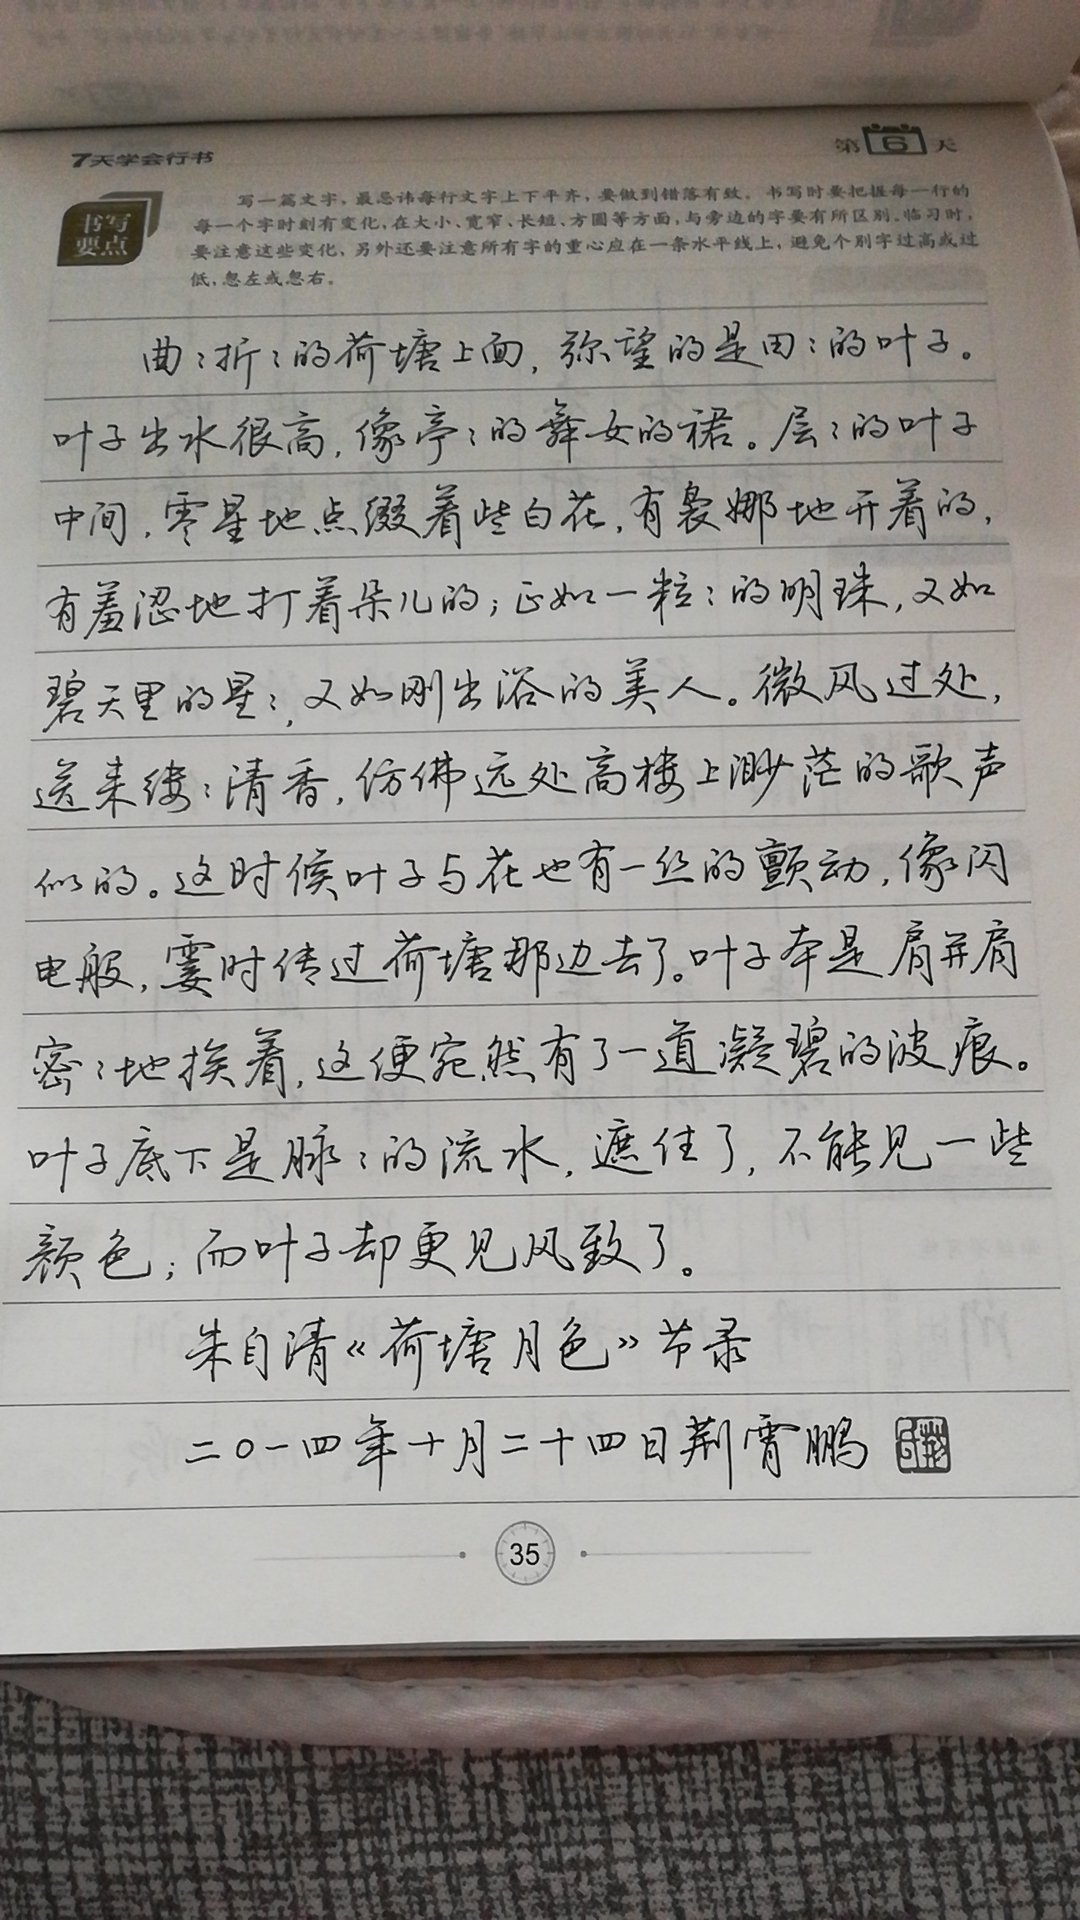 7天学会行书
第6天
书写
要点
写一篇文字，最忌讳每行文字上下平齐，要做到错落有致。书写时要把握每一行的
每一个字时刻有变化，在大小、宽窄、长短、方圆等方面，与旁边的字要有所区别。临习时，
要注意这些变化，另外还要注意所有字的重心应在一条水平线上，避免个别字过高或过
低，忽左或忽右。
曲：折：的荷塘上面，弥望的是田：的叶子。
叶子出水很高，像亭：的舞女的裙。层：的叶子
中间，零星地点缀着些白花，有袅娜地开着的，
有羞涩地打着朵儿的；正如一粒：的明珠，又如
碧天里的星：，又如刚出浴的美人。微风过处，
送来缕：清香，仿佛远处高楼上渺茫的歌声
似的。这时候叶子与花也有一丝的颤动，像闪
电般，霎时传过荷塘那边去了。叶子本是肩并肩
密：地挨着，这便宛然有了一道凝碧的波痕。
叶子底下是脉：的流水，遮住了，不能见一些
颜色；而叶子却更见风致了。
朱自清《荷塘月色》节录
二〇一四年十月二十四日荆霄鹏
35